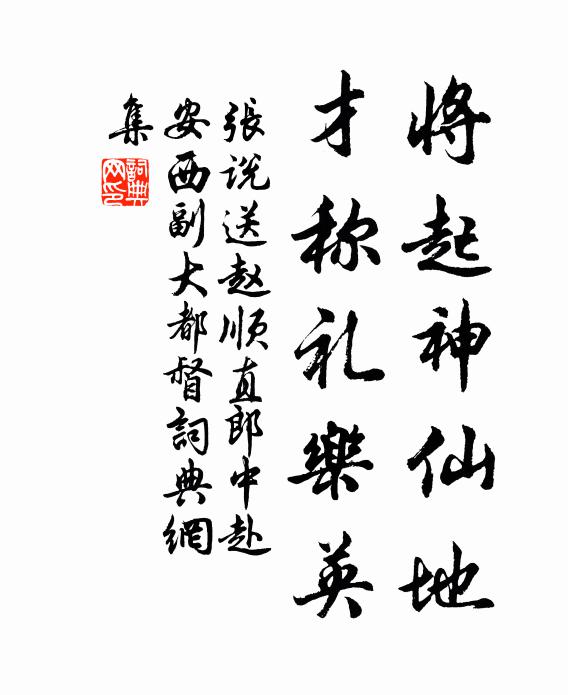 将起神仙地
才称礼樂英
張说送赵顺直郎中赴
安西副大都督詞典網
集
詞典
网印